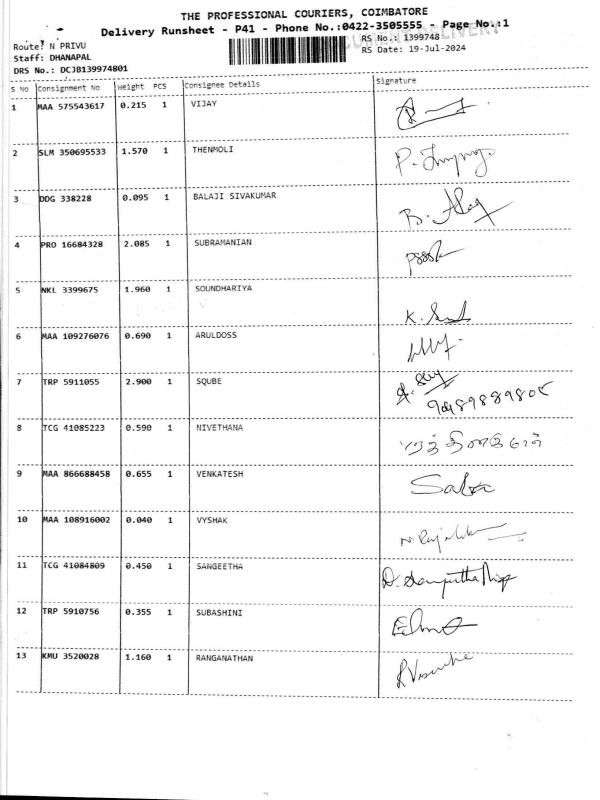 THE PROFESSIONAL COURIERS, COIMBATORE
Delivery Runsheet - P41 - Phone No.:0422-3505555 - Page No.:1
Route: N PRIVU
RS No.: 1399748
Staff: DHANAPAL
RS Date: 19-Jul-2024
DRS No.: DCJB139974801
S No Consignment No Weight PCS Consignee Details Signature
1 MAA 575543617 0.215 1 VIJAY
2 SLM 350695533 1.570 1 THENMOLI
3 DDG 338228 0.095 1 BALAJI SIVAKUMAR
4 PRO 16684328 2.085 1 SUBRAMANIAN
5 NKL 3399675 1.960 1 SOUNDHARIYA
6 MAA 109276076 0.690 1 ARULDOSS
7 TRP 5911055 2.900 1 SQUBE
8 TCG 41085223 0.590 1 NIVETHANA
9 MAA 866688458 0.655 1 VENKATESH
10 MAA 108916002 0.040 1 VYSHAK
11 TCG 41084809 0.450 1 SANGEETHA
12 TRP 5910756 0.355 1 SUBASHINI
13 KMU 3520028 1.160 1 RANGANATHAN